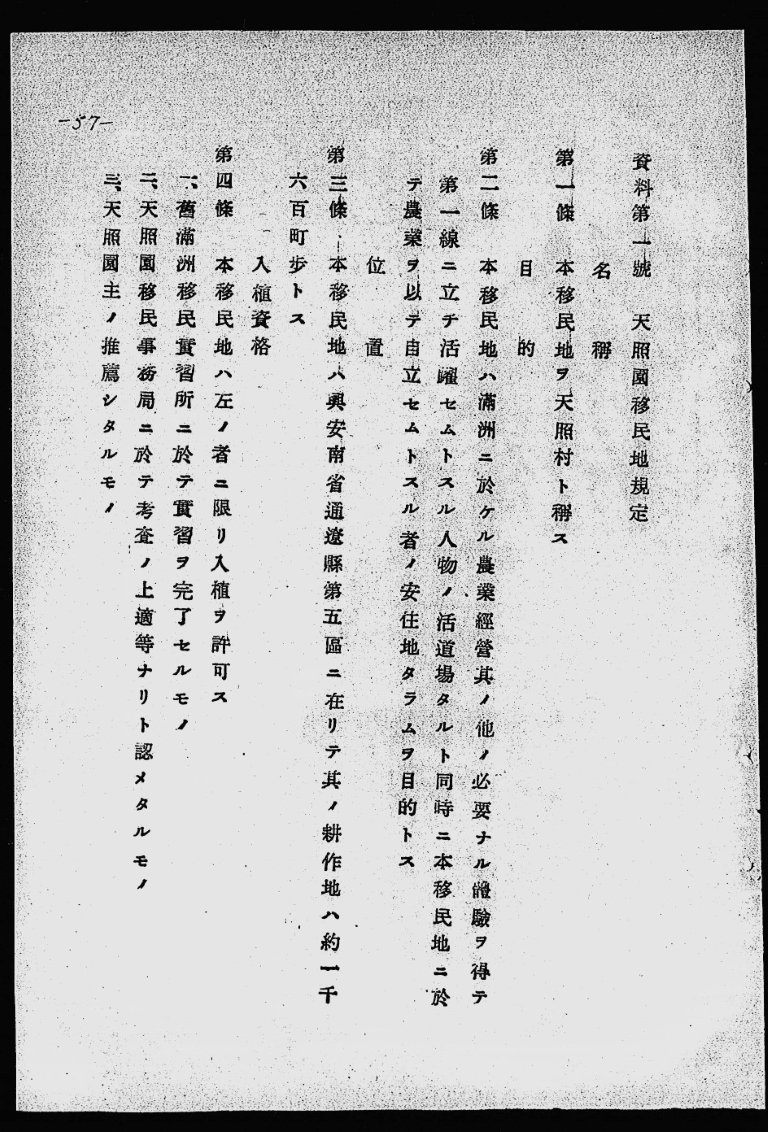 -57-
資料第一號　天照園移民地規定
名　稱
第一條　本移民地ヲ天照村ト稱ス
目　的
第二條　本移民地ハ滿洲ニ於ケル農業經營其ノ他ノ必要ナル體驗ヲ得テ
第一線ニ立チ活躍セムトスル人物ノ活道場タルト同時ニ本移民地ニ於
テ農業ヲ以テ自立セムトスル者ノ安住地タラムヲ目的トス
位　置
第三條　本移民地ハ興安南省通遼縣第五區ニ在リテ其ノ耕作地ハ約一千
六百町歩トス
入植資格
第四條　本移民地ハ左ノ者ニ限リ入植ヲ許可ス
一、舊滿洲移民實習所ニ於テ實習ヲ完了セルモノ
二、天照園移民事務局ニ於テ考査ノ上適等ナリト認メタルモノ
三、天照園主ノ推薦シタルモノ